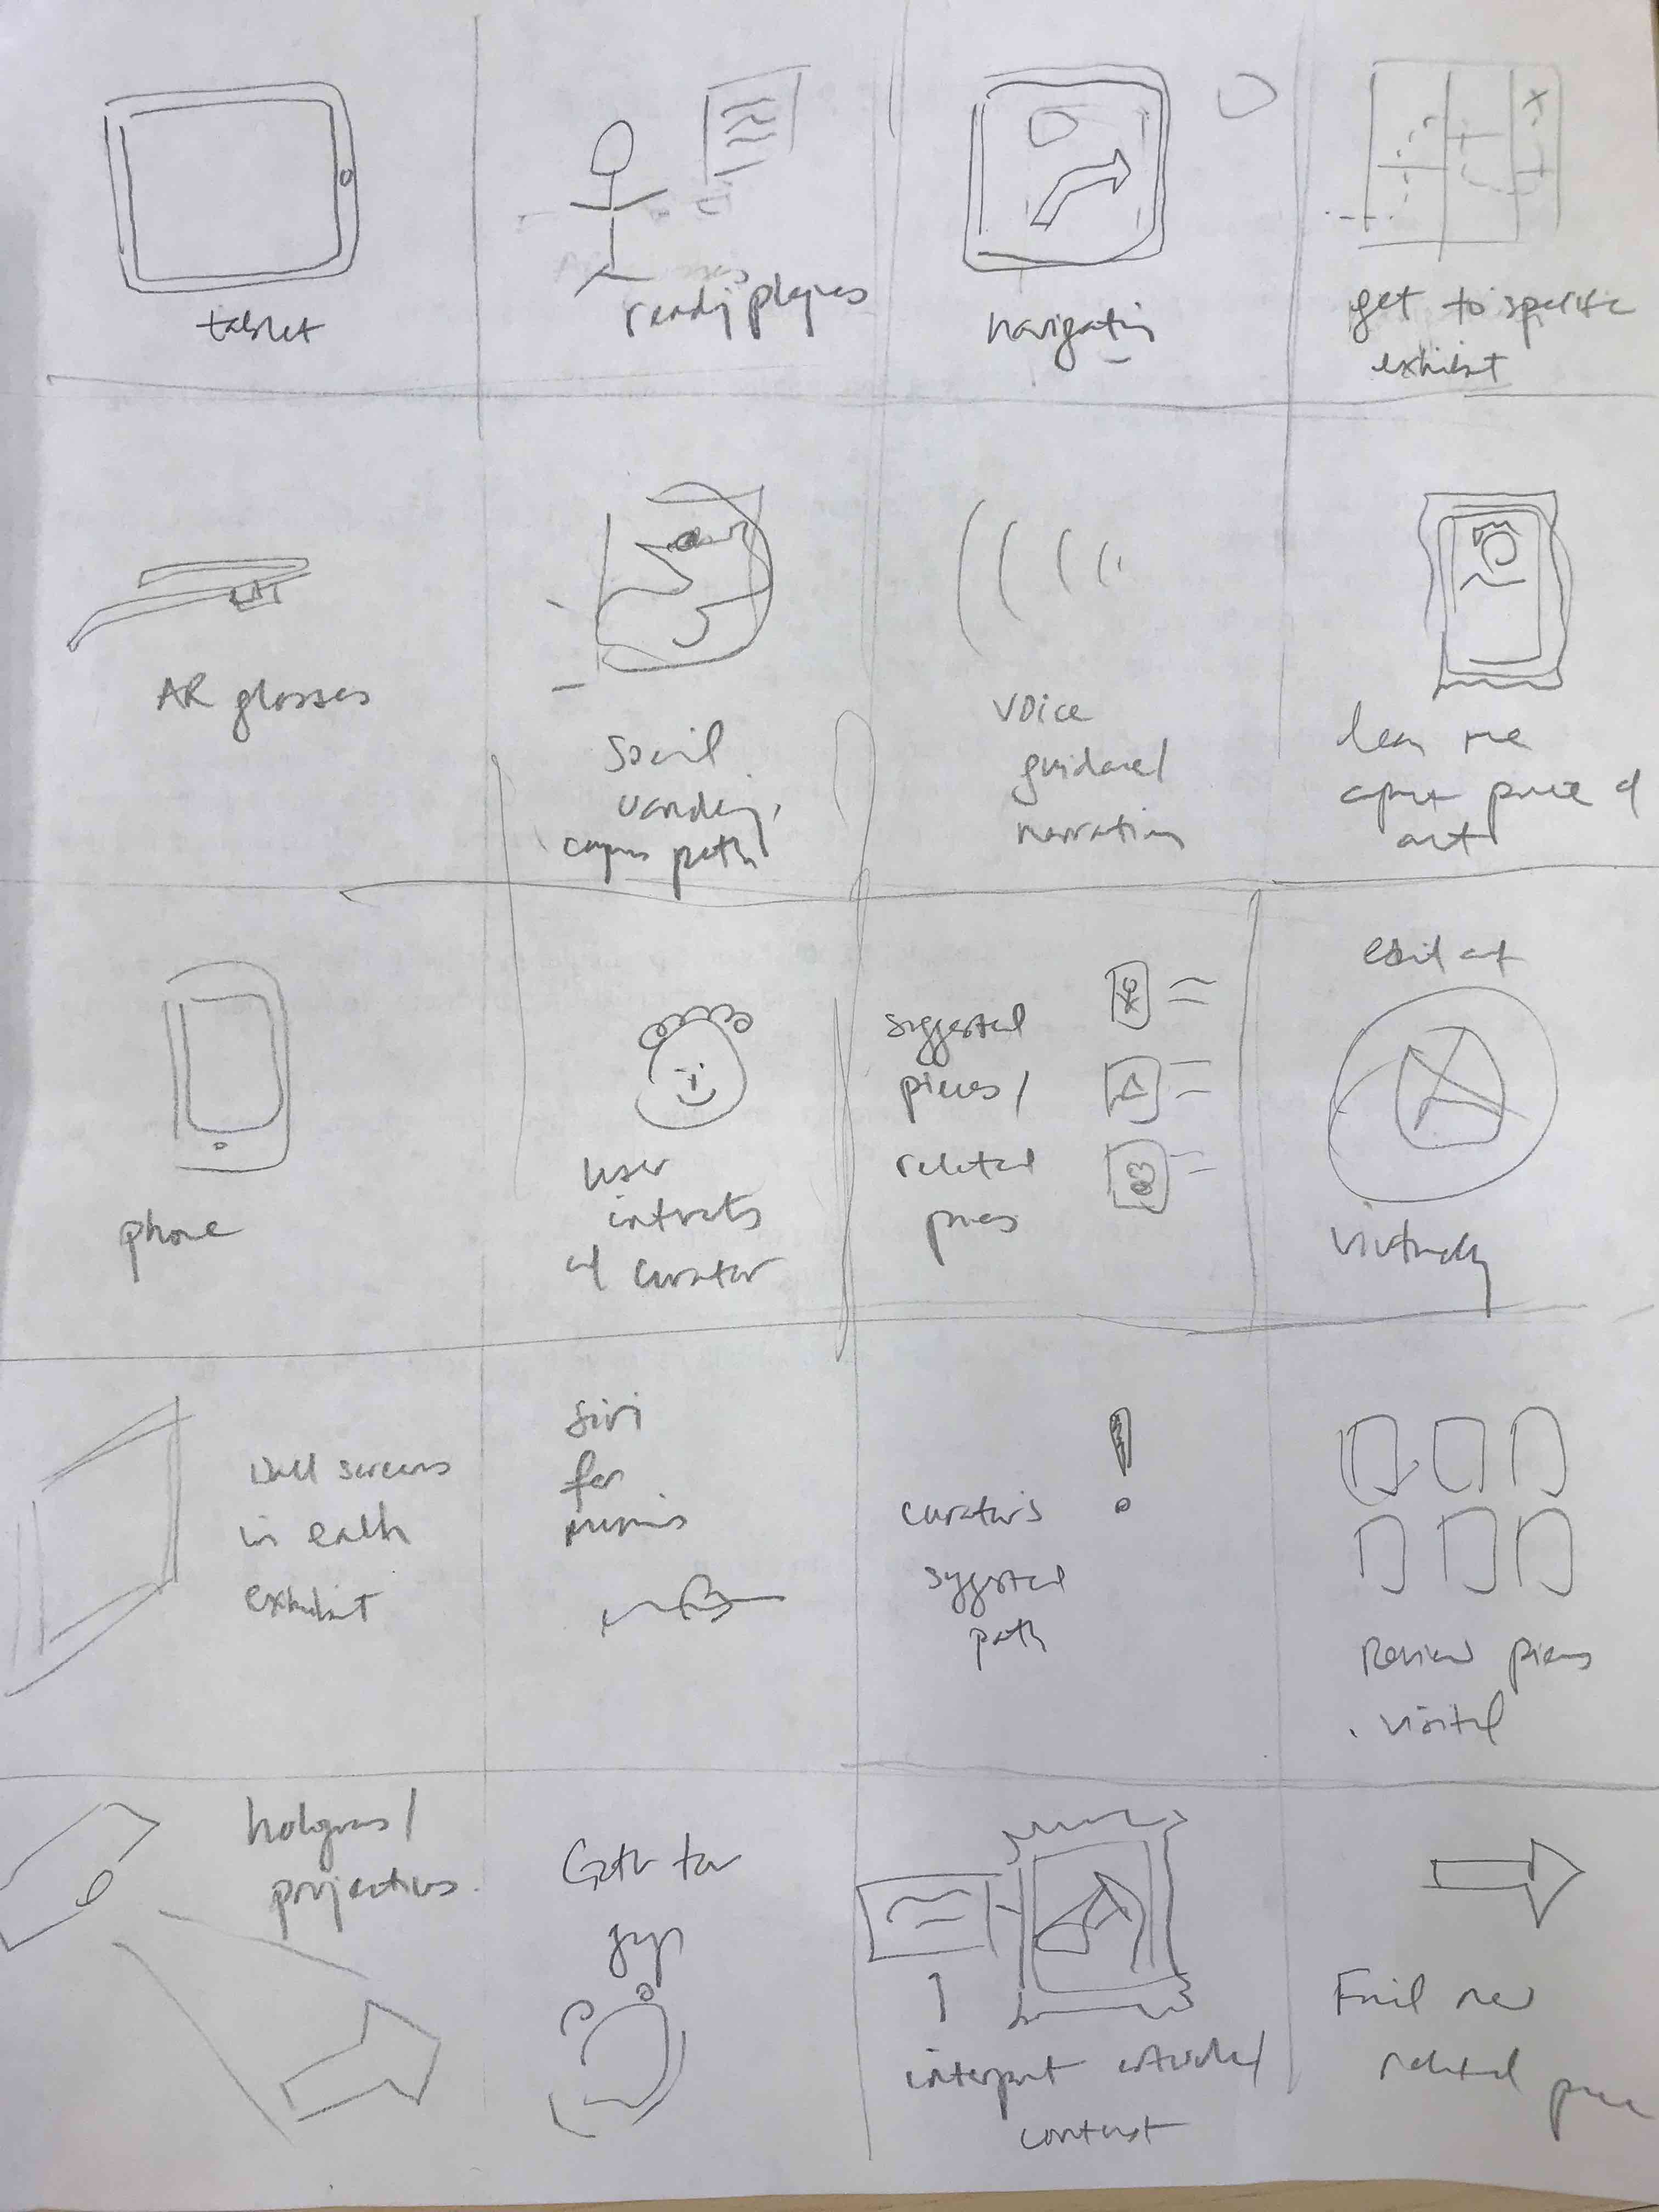 tablet
reading plaques
navigating
get to specific
exhibit
AR glasses
Social
wandering,
path
voice
guidance/
narration
learn more
about piece of
art
phone
user
interacts
w/ curator
suggested
pieces/
related
pieces
edit art
virtually
Wall screens
in each
exhibit
Siri
for
curator's
suggested
path
Review pieces
visited
holograms/
projections
interpret
context
Find new
related piece